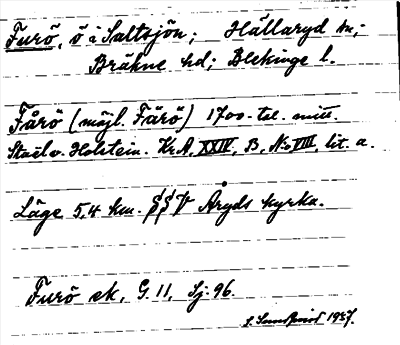 Furö, ö i Saltsjön; Hällaryd sn;
Bräkne hd; Blekinge l.
Fårö (möjl. Färö) 1700-tal. mitt.
Staël v. Holstein. Kr.A, XXIV, B, No VIII, lit. a.
Läge 5,4 km. SSV Åryds kyrka.
Furö ek, G. 11, Sj: 96.
S. Sundqvist 1937.